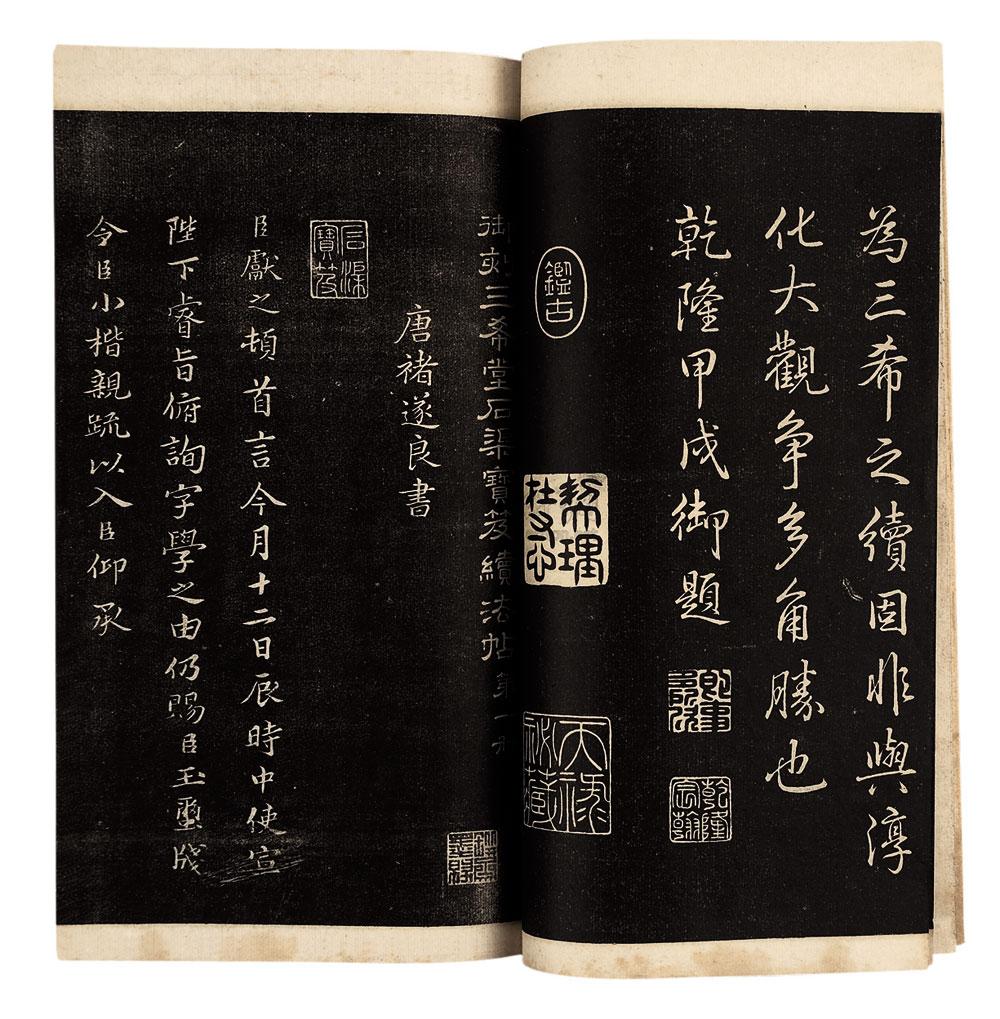 為三希之續固非與淳
化大觀争多角勝也
乾隆甲戌御題
乾隆宸翰
鑑古
御刻三希堂石渠寶笈續法帖第一冊
唐褚遂良書
石渠寶笈
臣獻之頓首言今月十二日辰時中使宣
陛下睿旨俯詢字學之由仍賜臣玉璽牋
令臣小楷親疏以入臣仰承